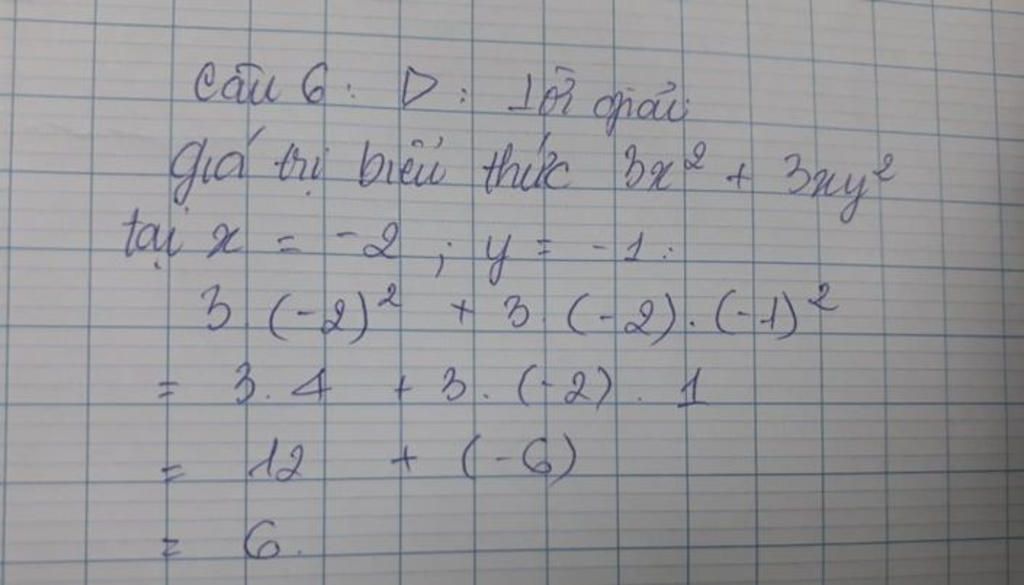 Câu 6: D: Lời giải:
giá trị biểu thức 3x² + 3xy²
tại x = -2 ; y = -1:
3 (-2)² + 3. (-2). (-1)²
= 3. 4 + 3. (-2) . 1
= 12 + (-6)
= 6.